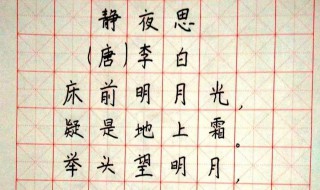 静夜思
(唐)李白
床前明月光，
疑是地上霜。
举头望明月，